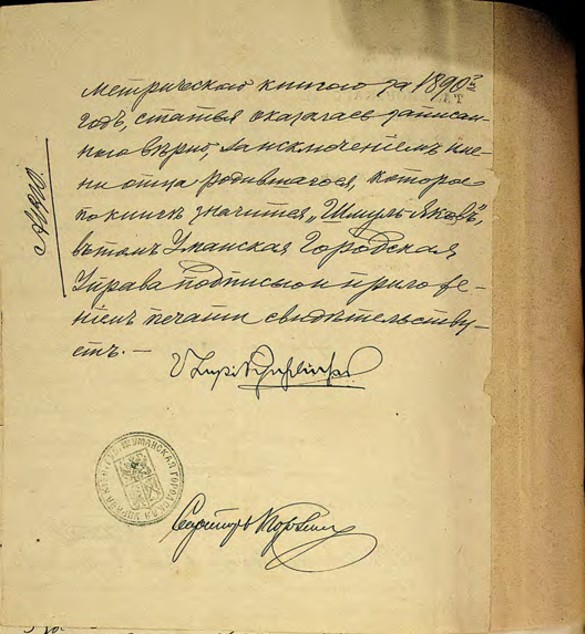 метрическою книгою за 1890й
годъ, статья оказалась записан-
ною вѣрно, за исключеніемъ име-
ни отца родившагося, которое
по книгѣ значится „Шмуль-Яковъ“,
въ томъ Уманская Городская
Управа подписью и приложе-
ніемъ печати свидѣтельству-
етъ. —
УМАНСКАЯ ГОРОДСКАЯ УПРАВА
Секретарь